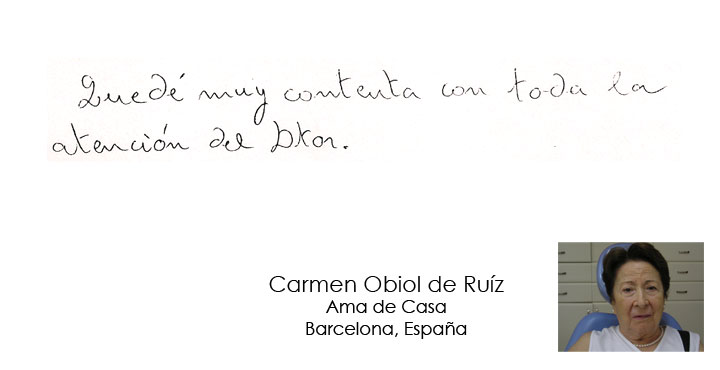 Quedé muy contenta con toda la
atención del Dktor.
Carmen Obiol de Ruíz
Ama de Casa
Barcelona, España